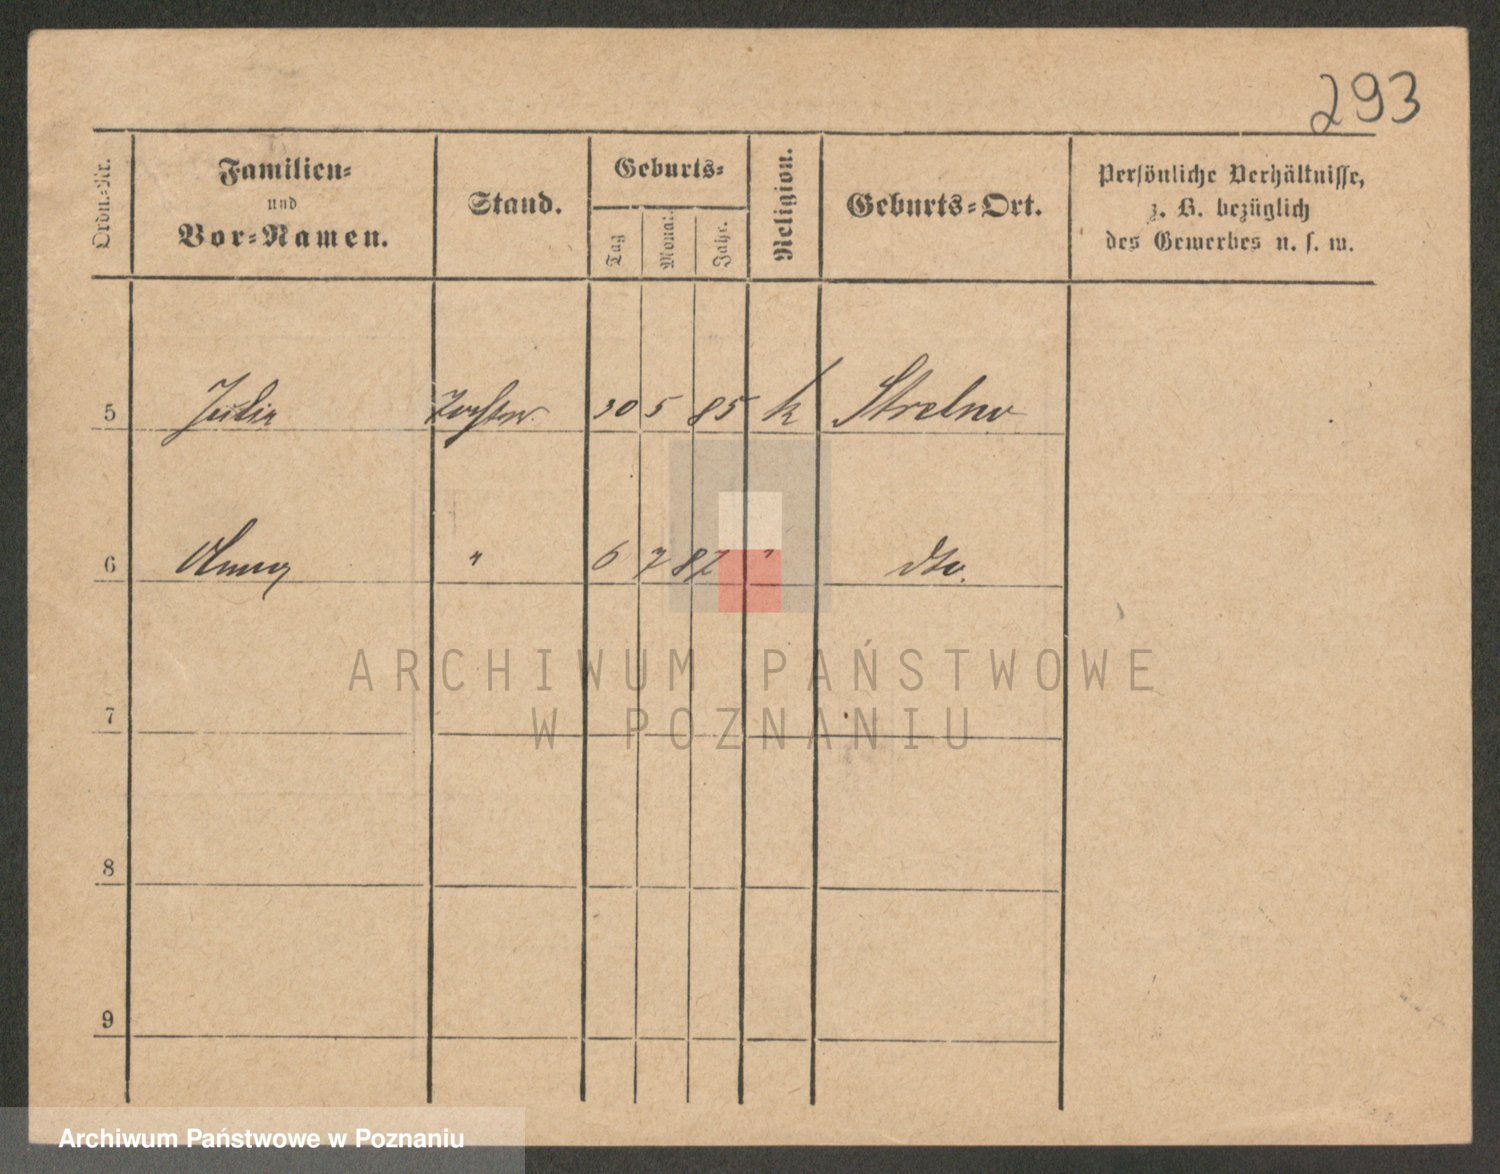 293
Ordn.-Nr.
Familien-
und
Vor-Namen.
Stand.
Geburts-
Tag
Monat.
Jahr.
Religion.
Geburts-Ort.
Persönliche Verhältnisse,
z. B. bezüglich
des Gewerbes u. s. w.
5 Julia Tochter 30 5 85 k Strelno
6 " 6 7 87 " dto.
7
8
9
ARCHIWUM PAŃSTWOWE
W POZNANIU
Archiwum Państwowe w Poznaniu